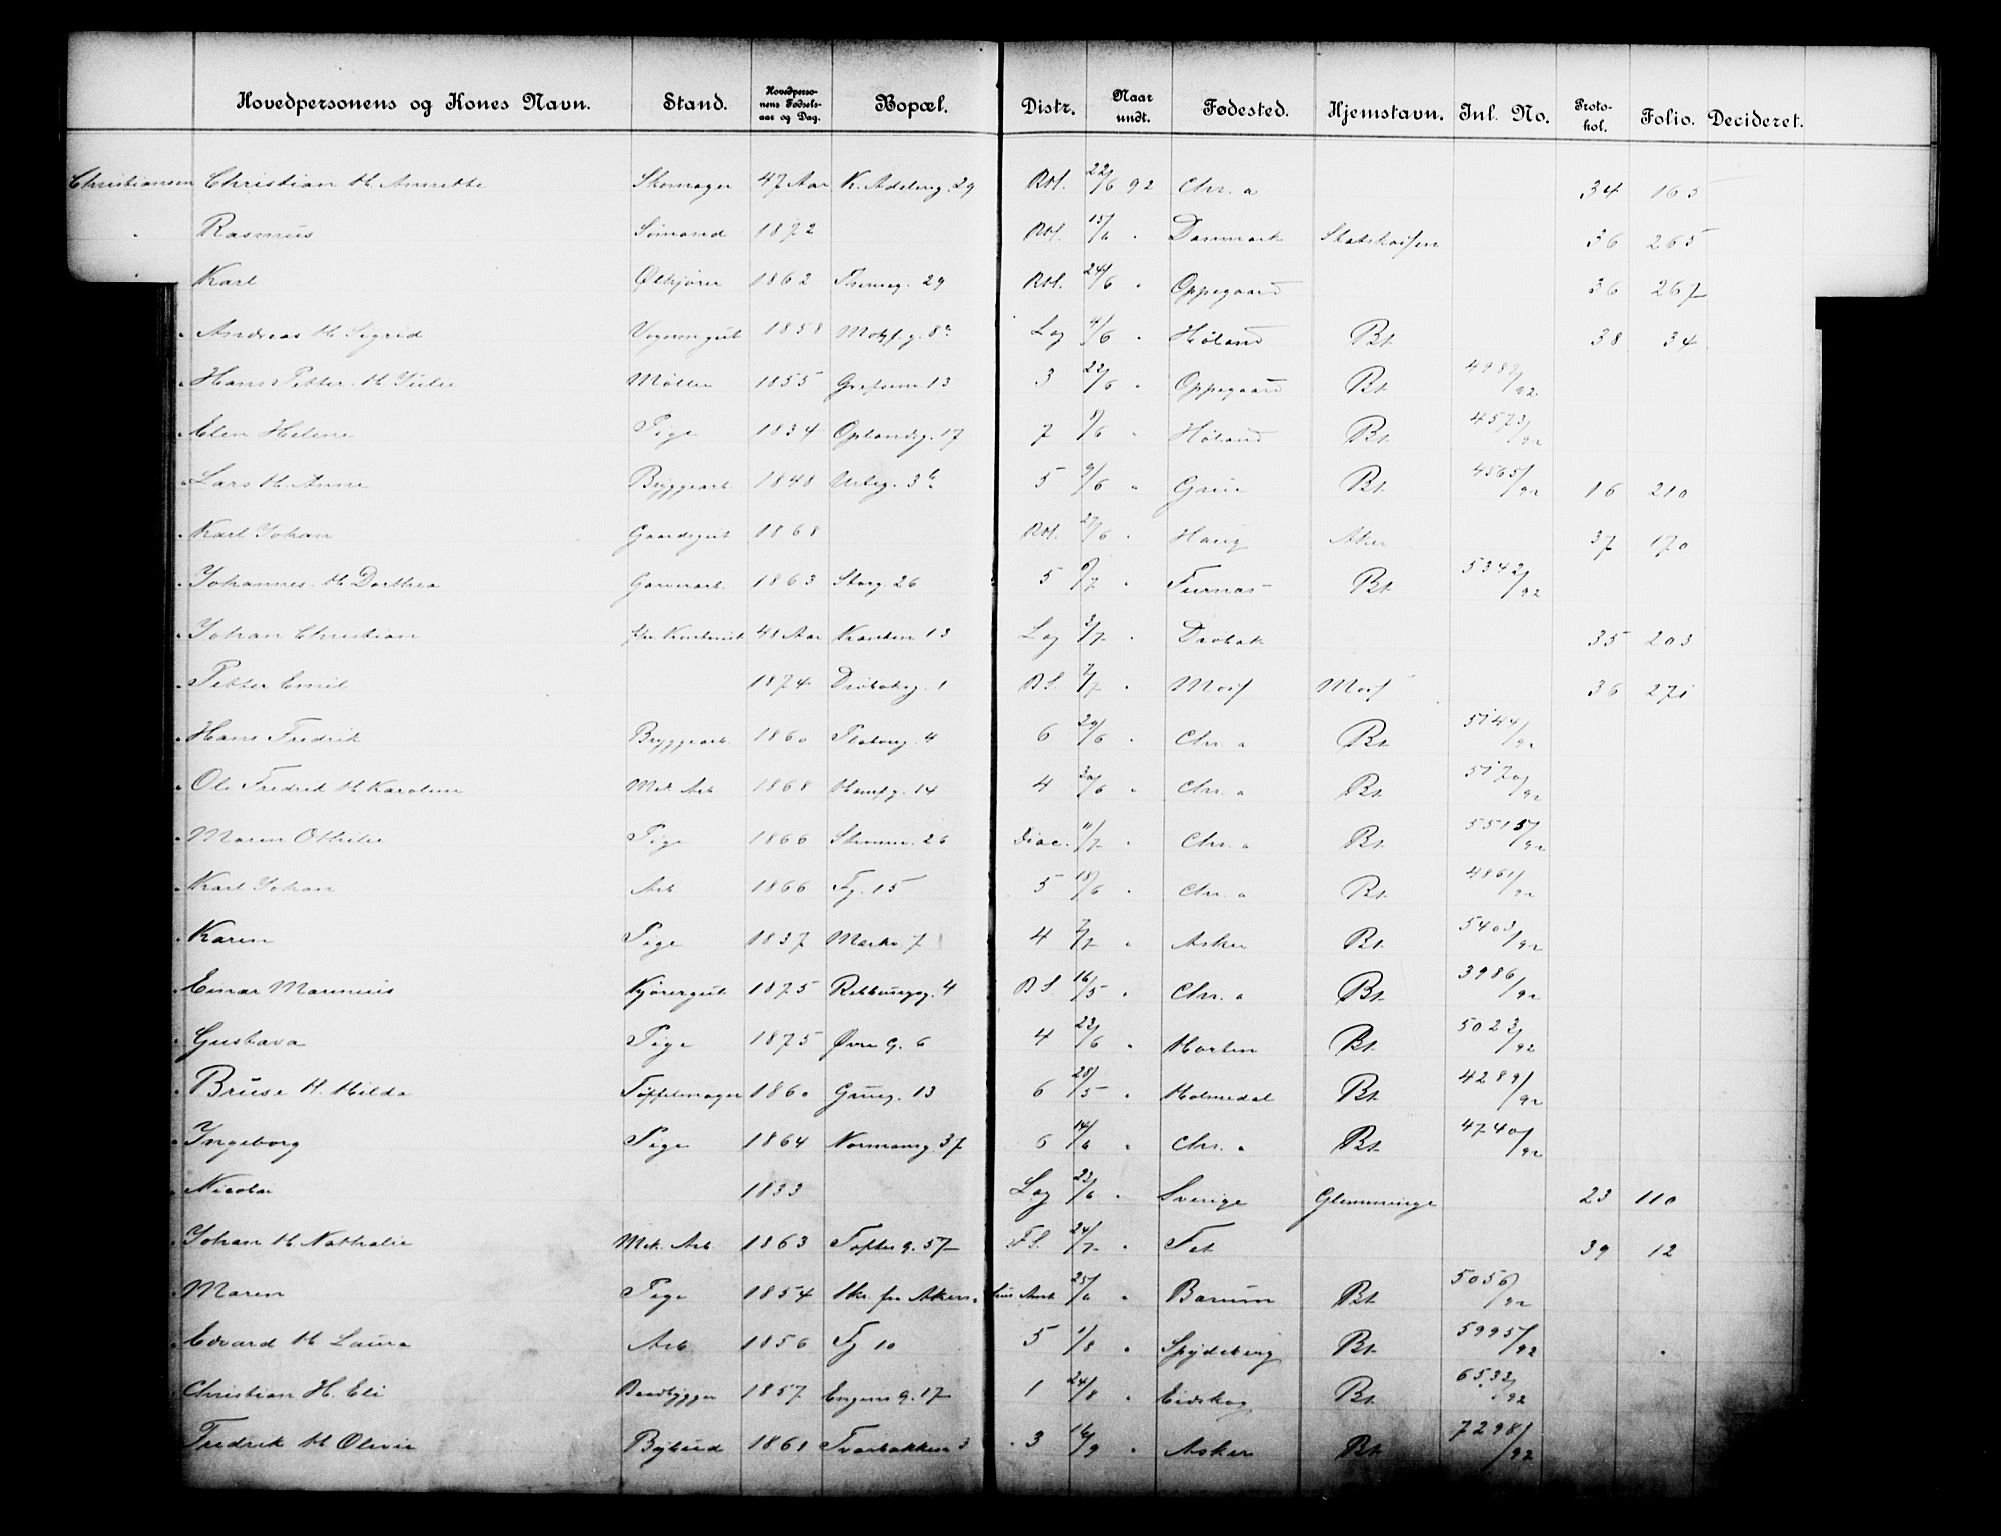 Hovedpersonens og Kones Navn. Stand. Hovedpersonens Fødselsaar og Dag. Bopæl. Distr. Naar undt. Fødested. Hjemstavn. Inl. No. Protokol. Folio. Decideret.
Christiansen Christian H. Annette Skomager 47 Aar K. Adelerg. 29 Rtf. 22/6 92 Chr.a 34 165
" Rasmus Sømand 1872 Rtf. 15/6 " Danmark 36 265
" Karl Ølkjører 1862 29 Rtf. 24/6 " Oppegaard 36 267
" Andreas H. Sigrid Vognmgut 1858 Motzf.g. 8a Log 4/6 " Høland Bt. 38 34
" Hans Petter H. Julie Møller 1855 Grefsenv. 13 3 22/6 " Oppegaard Bt. 4989/92
" Elen Helene Pige 1834 Oplandsg. 17 7 8/6 " Høland Bt. 4573/92
" Lars H. Anne Bryggearb. 1848 Urteg. 3b 5 9/6 " Grue Bt. 4565/92 16 210
" Karl Johan Gaardsgut 1868 Rtf. 27/6 " Haug Aker 37 170
" Johannes H. Dorthea Garverarb. 1863 Storg. 26 5 6/7 " Furnæs Bt. 5342/92
" Johan Christian 41 Aar Kanten 13 Log 3/7 " Drøbak 35 203
" Petter Emil 1874 Drøbaksg. 1 B.S. 7/7 " Moss Moss 36 271
" Hans Fredrik Bryggearb. 1860 Platousg. 4 6 29/6 " Chr.a Bt. 5144/92
" Ole Fredrik H. Karoline Mek. Arb. 1868 Mansf.g. 14 4 30/6 " Chr.a Bt. 5170/92
" Maren Othilie Pige 1866 26 Diac. 11/7 " Chr.a Bt. 5515/92
" Karl Johan Arb 1866 Fj. 15 5 18/6 " Chr.a Bt. 4861/92
" Karen Pige 1837 Markv 7 4 7/7 " Asker Bt. 5403/92
" Einar Marinius Kjøregut 1875 4 B.S. 16/5 " Chr.a Bt. 3986/92
" Gustava Pige 1875 Øvre G. 6 4 23/6 " Horten Bt. 5023/92
" Bruse H. Hilda Tøffelmager 1860 Grueg. 13 6 28/5 " Holmedal Bt. 4289/92
" Ingeborg Pige 1864 Normannsg. 37 6 14/6 " Chr.a Bt. 4740/92
" Nicolai 1833 Log 22/6 " Sverige Glemminge 23 110
" Johan H. Nathalie Mek. Arb. 1863 Toftes g. 57 F.S. 24/7 " Fet 39 12
" Maren Pige 1854 Skr. fra Akershus Amt 25/6 " Bærum Bt. 5056/92
" Edvard H. Laura Arb 1856 Fj 10 5 1/8 " Spydeberg Bt. 5995/92
" Christian H. Eli Baadbygger 1857 Engens g. 17 1 24/8 " Eidskog Bt. 6532/92
Fredrik H. Olivie Bybud 1861 Tværbakken 3 3 16/9 " Asker Bt. 7298/92